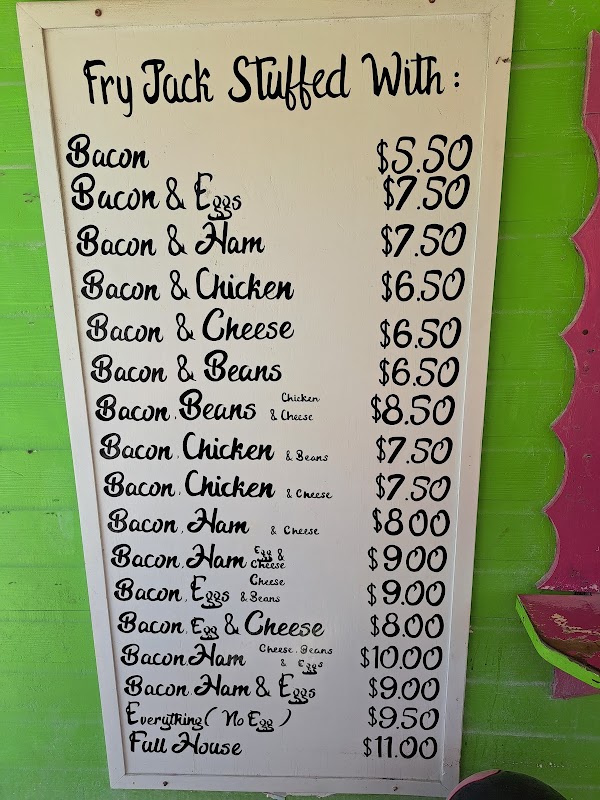 Fry Jack Stuffed With:
Bacon $5.50
Bacon & Eggs $7.50
Bacon & Ham $7.50
Bacon & Chicken $6.50
Bacon & Cheese $6.50
Bacon & Beans $6.50
Bacon, Beans Chicken & Cheese $8.50
Bacon, Chicken & Beans $7.50
Bacon, Chicken & Cheese $7.50
Bacon, Ham & Cheese $8.00
Bacon, Ham Egg & Cheese $9.00
Bacon, Eggs Cheese & Beans $9.00
Bacon, Egg & Cheese $8.00
Bacon Ham Cheese, Beans & Eggs $10.00
Bacon, Ham & Eggs $9.00
Everything ( No Egg ) $9.50
Full House $11.00